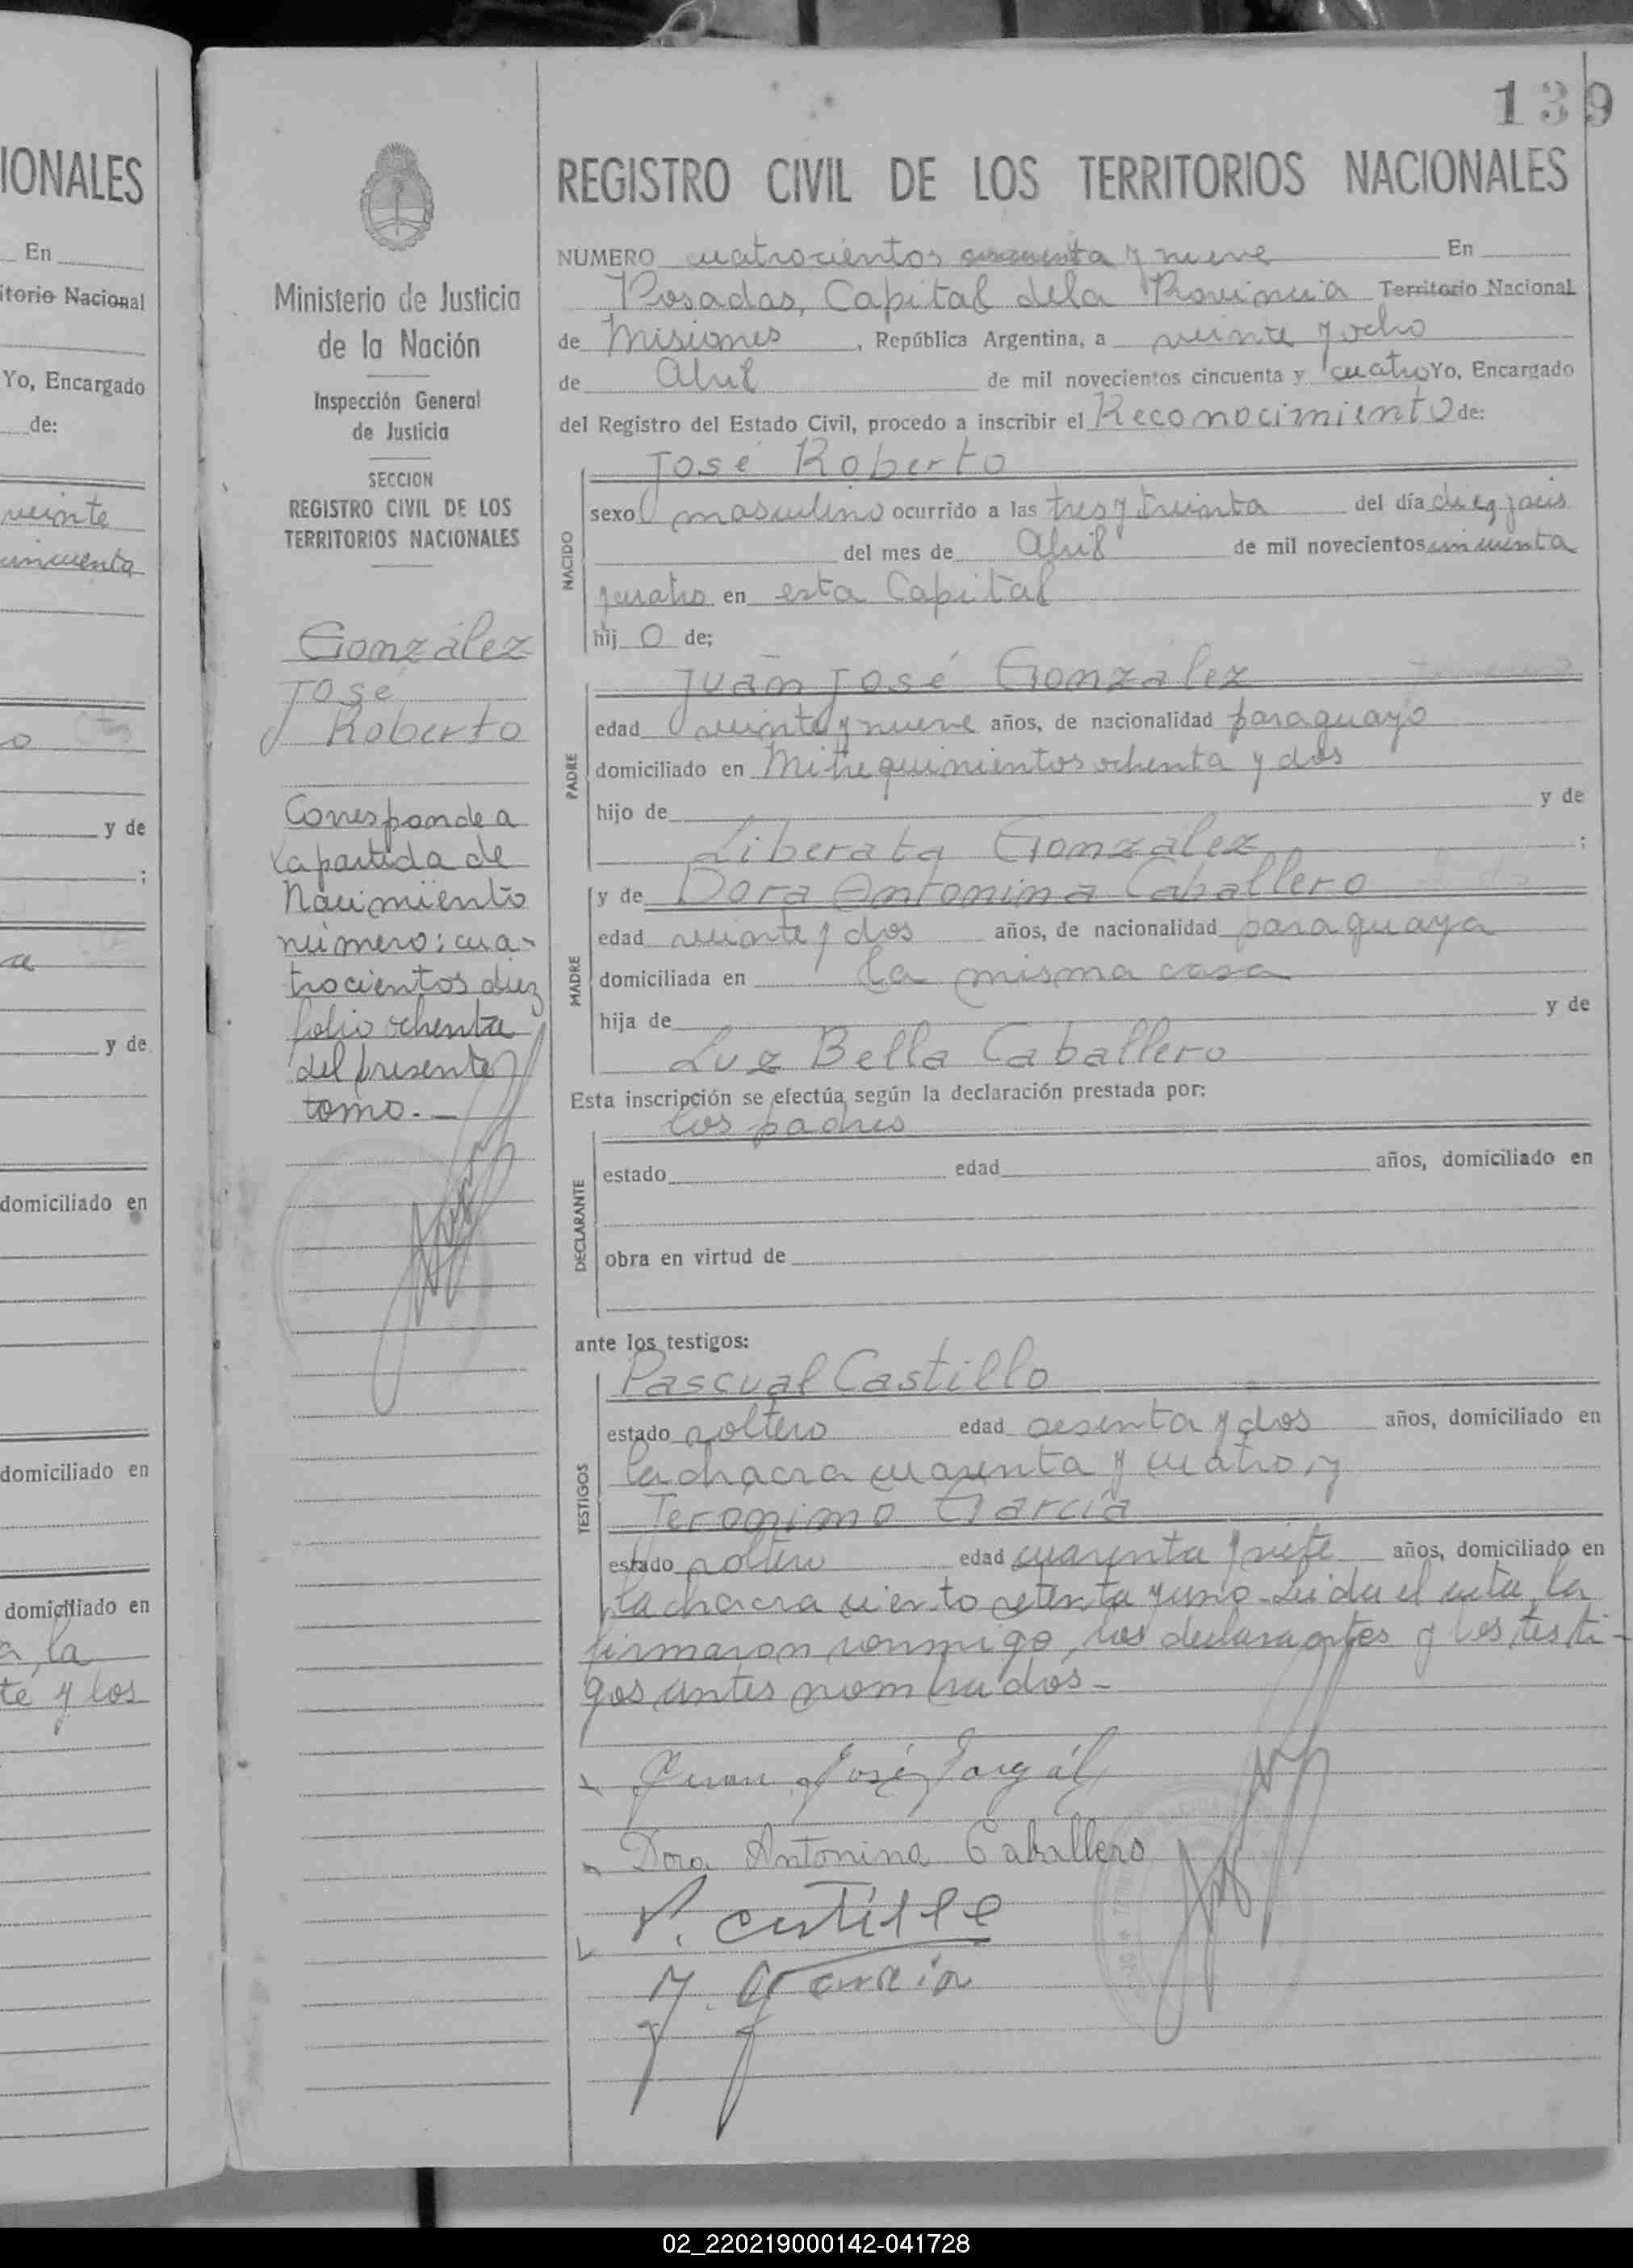 IONALES
En
itorio Nacional
Yo, Encargado
de:
veinte
cincuenta
o
y de
;
y de
domiciliado en
domiciliado en
domiciliado en
a, la
te y los
139
Ministerio de Justicia
de la Nación
Inspección General
de Justicia
SECCION
REGISTRO CIVIL DE LOS
TERRITORIOS NACIONALES
González
José
Roberto
Corresponde a
la partida de
Nacimiento
número: cua-
trocientos diez
folio ochenta
del presente
tomo. —
REGISTRO CIVIL DE LOS TERRITORIOS NACIONALES
NUMERO cuatrocientos cincuenta y nueve En
Posadas, Capital de la Provincia Territorio Nacional
de Misiones, República Argentina, a veinte y ocho
de Abril de mil novecientos cincuenta y cuatro Yo, Encargado
del Registro del Estado Civil, procedo a inscribir el Reconocimiento de:
José Roberto
NACIDO
sexo masculino ocurrido a las tres y treinta del día diez y seis
del mes de Abril de mil novecientos cincuenta
y cuatro en esta Capital
hij o de;
Juan José González
PADRE
edad veinte y nueve años, de nacionalidad paraguayo
domiciliado en Mitre quinientos ochenta y dos
hijo de y de
Liberata González ;
y de Dora Antonina Caballero
MADRE
edad veinte y dos años, de nacionalidad paraguaya
domiciliada en la misma casa
hija de y de
Luz Bella Caballero
Esta inscripción se efectúa según la declaración prestada por:
los padres
DECLARANTE
estado edad años, domiciliado en
obra en virtud de
ante los testigos:
Pascual Castillo
TESTIGOS
estado soltero edad sesenta y dos años, domiciliado en
la chacra cuarenta y cuatro, y
Jeronimo García
estado soltero edad cuarenta y siete años, domiciliado en
la chacra ciento setenta y uno - Leída el acta, la
firmaron conmigo, los declarantes y los testi-
gos antes nombrados -
Juan José
Dora Antonina Caballero
P. Castillo
J. Garcia
02_220219000142-041728